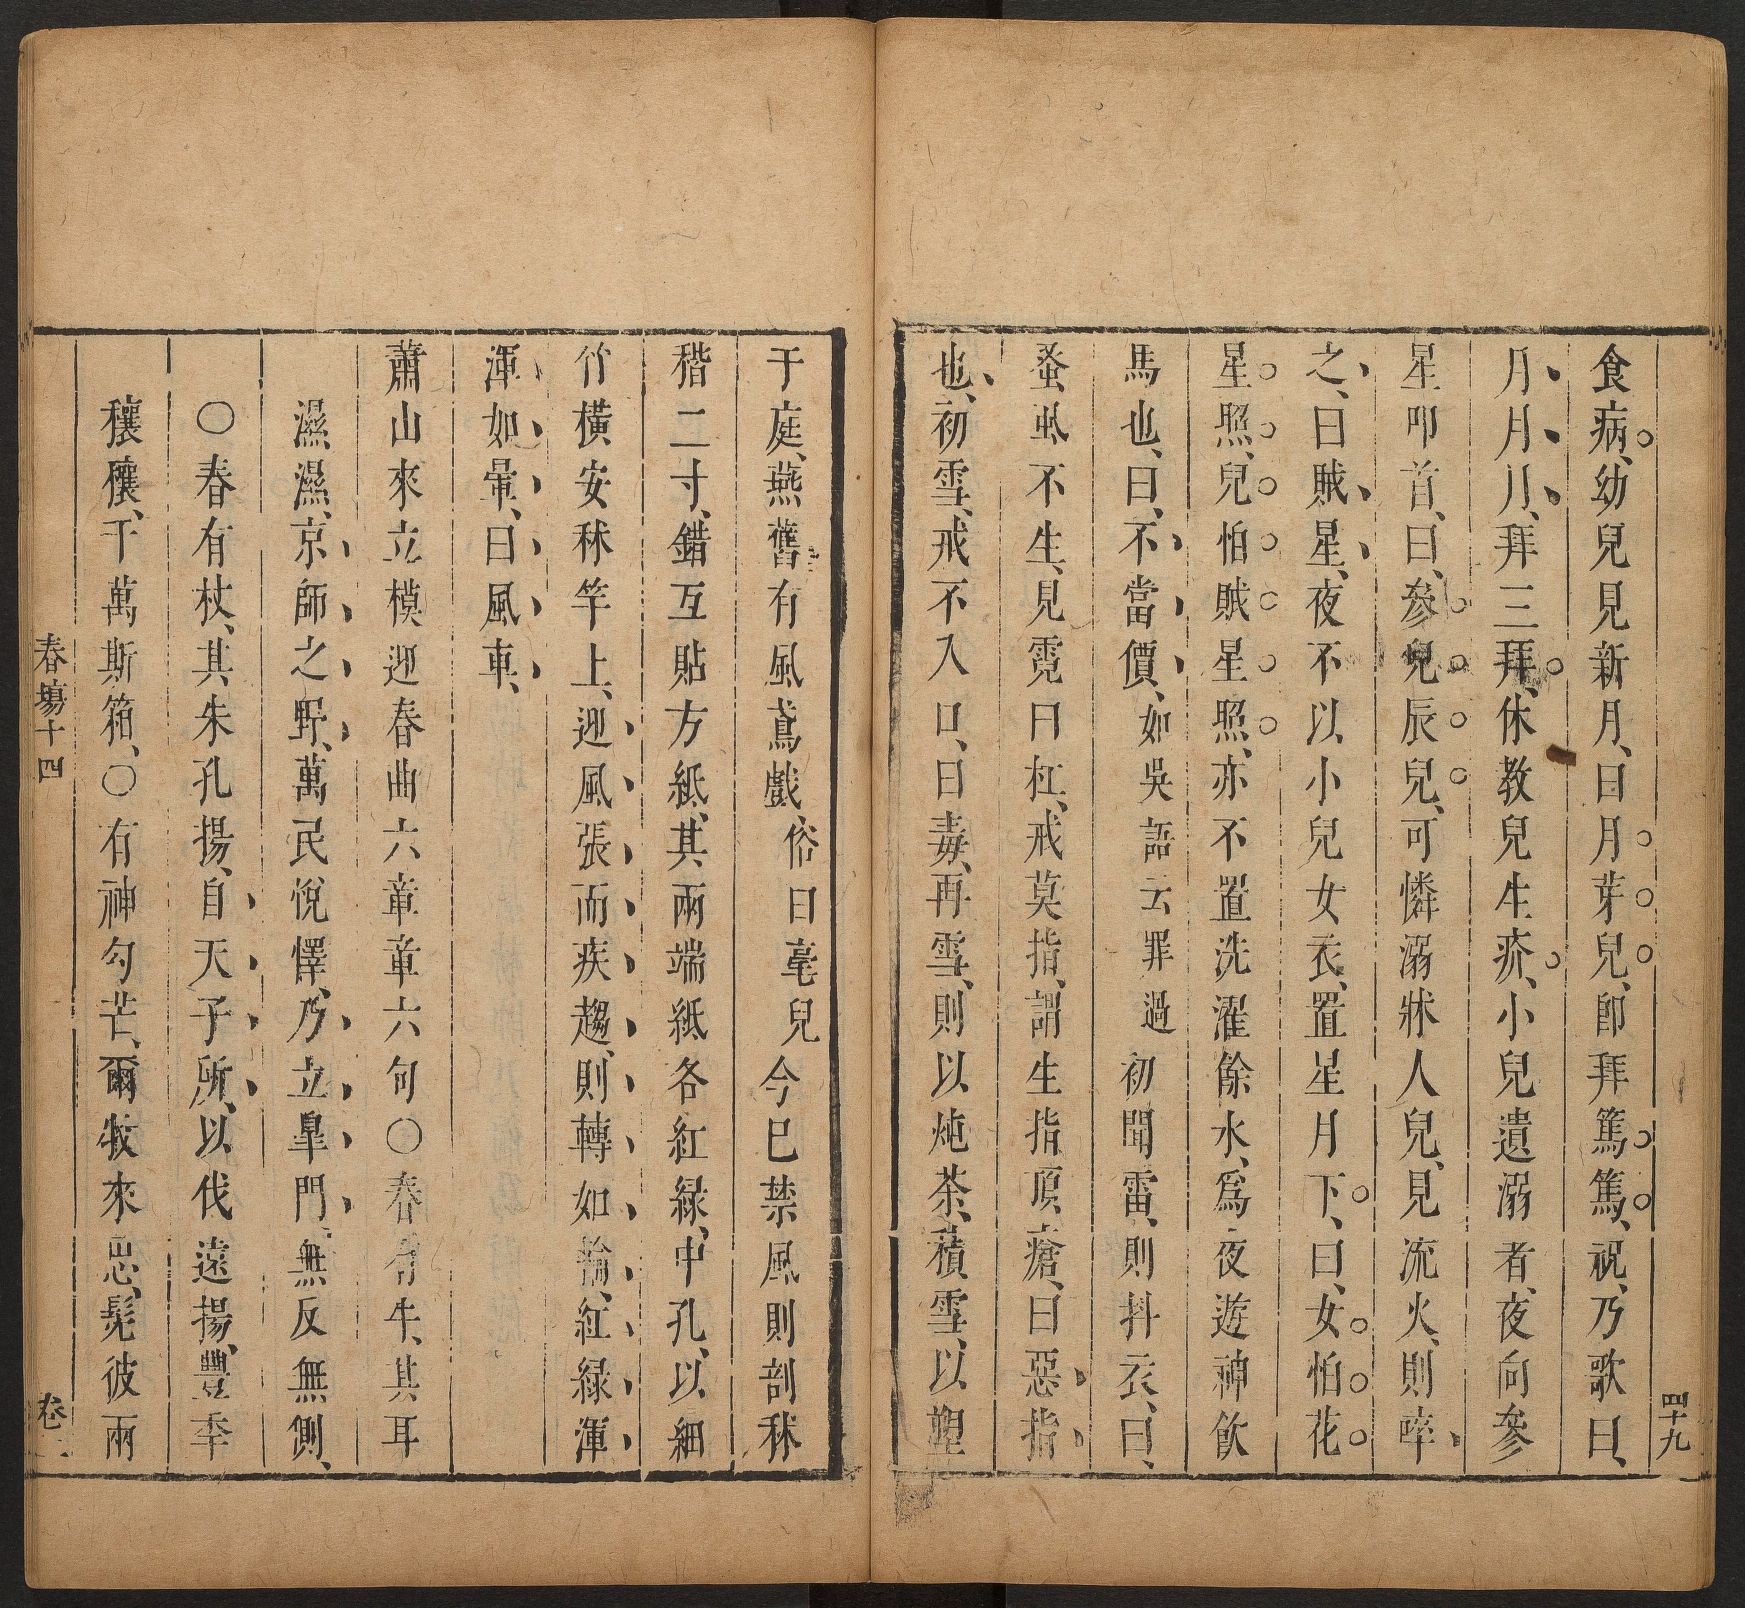 四十九
食病、幼兒見新月、曰月芽兒、卽拜篤篤、祝、乃歌曰、
月月月、拜三拜、休教兒生疥、小兒遺溺者、夜向參
星叩首、曰、參兒辰兒、可憐溺牀人兒、見流火、則啐
之、曰賊星、夜不以小兒女衣、置星月下、曰、女怕花
星照、兒怕賊星照、亦不置洗濯餘水、爲夜遊神飲
馬也、曰、不當價、如吳語云罪過初聞雷、則抖衣、曰、
蚤虱不生、見霓曰杠、戒莫指、謂生指頂瘡、曰惡指
也、初雪、戒不入口、曰毒、再雪、則以炖茶、積雪、以塑
于庭、燕舊有風鳶戲、俗曰毫兒今已禁風則剖秫
稭二寸、錯互貼方紙、其兩端紙各紅緑、中孔、以細
竹橫安秫竿上、迎風張而疾趨、則轉如輪、紅緑渾
渾如暈、曰風車、
蕭山來立模迎春曲六章章六句〇春有牛、其耳
濕濕、京師之野、萬民悅懌、乃立皐門、無反無側、
〇春有杖、其朱孔揚、自天子所、以伐遠揚、豐年
穰穰、千萬斯箱、〇有神勾芒、爾牧來思、髧彼兩
春塲十四
卷二